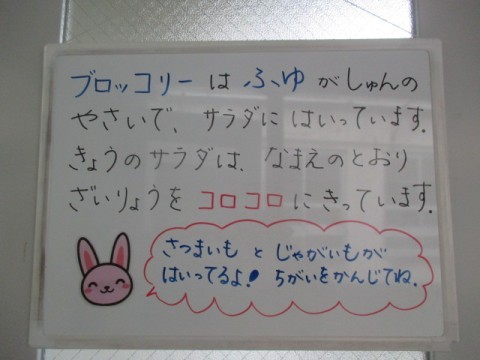 ブロッコリー は ふゆ がしゅんの
やさいで、サラダに はいっています.
きょうのサラダは、なまえのとおり
ざいりょうを コロコロ にきっています.
さつまいも と じゃがいもが
はいってるよ! ちがいをかんじてね.